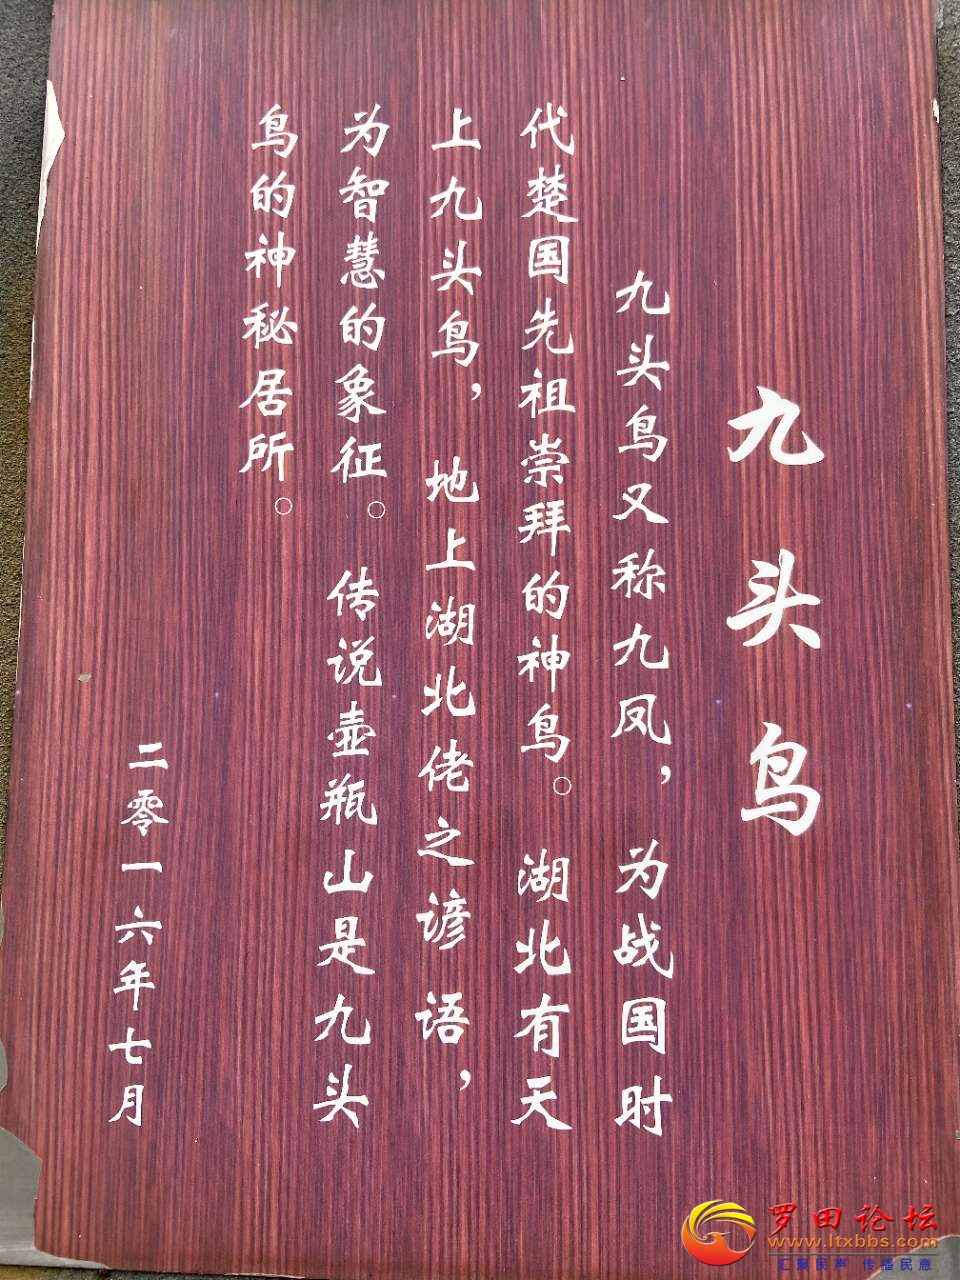 九头鸟
九头鸟又称九凤，为战国时
代楚国先祖崇拜的神鸟。湖北有天
上九头鸟，地上湖北佬之谚语，
为智慧的象征。传说壶瓶山是九头
鸟的神秘居所。
二零一六年七月
罗田论坛
www.ltxbbs.com
汇聚民声 传播民意